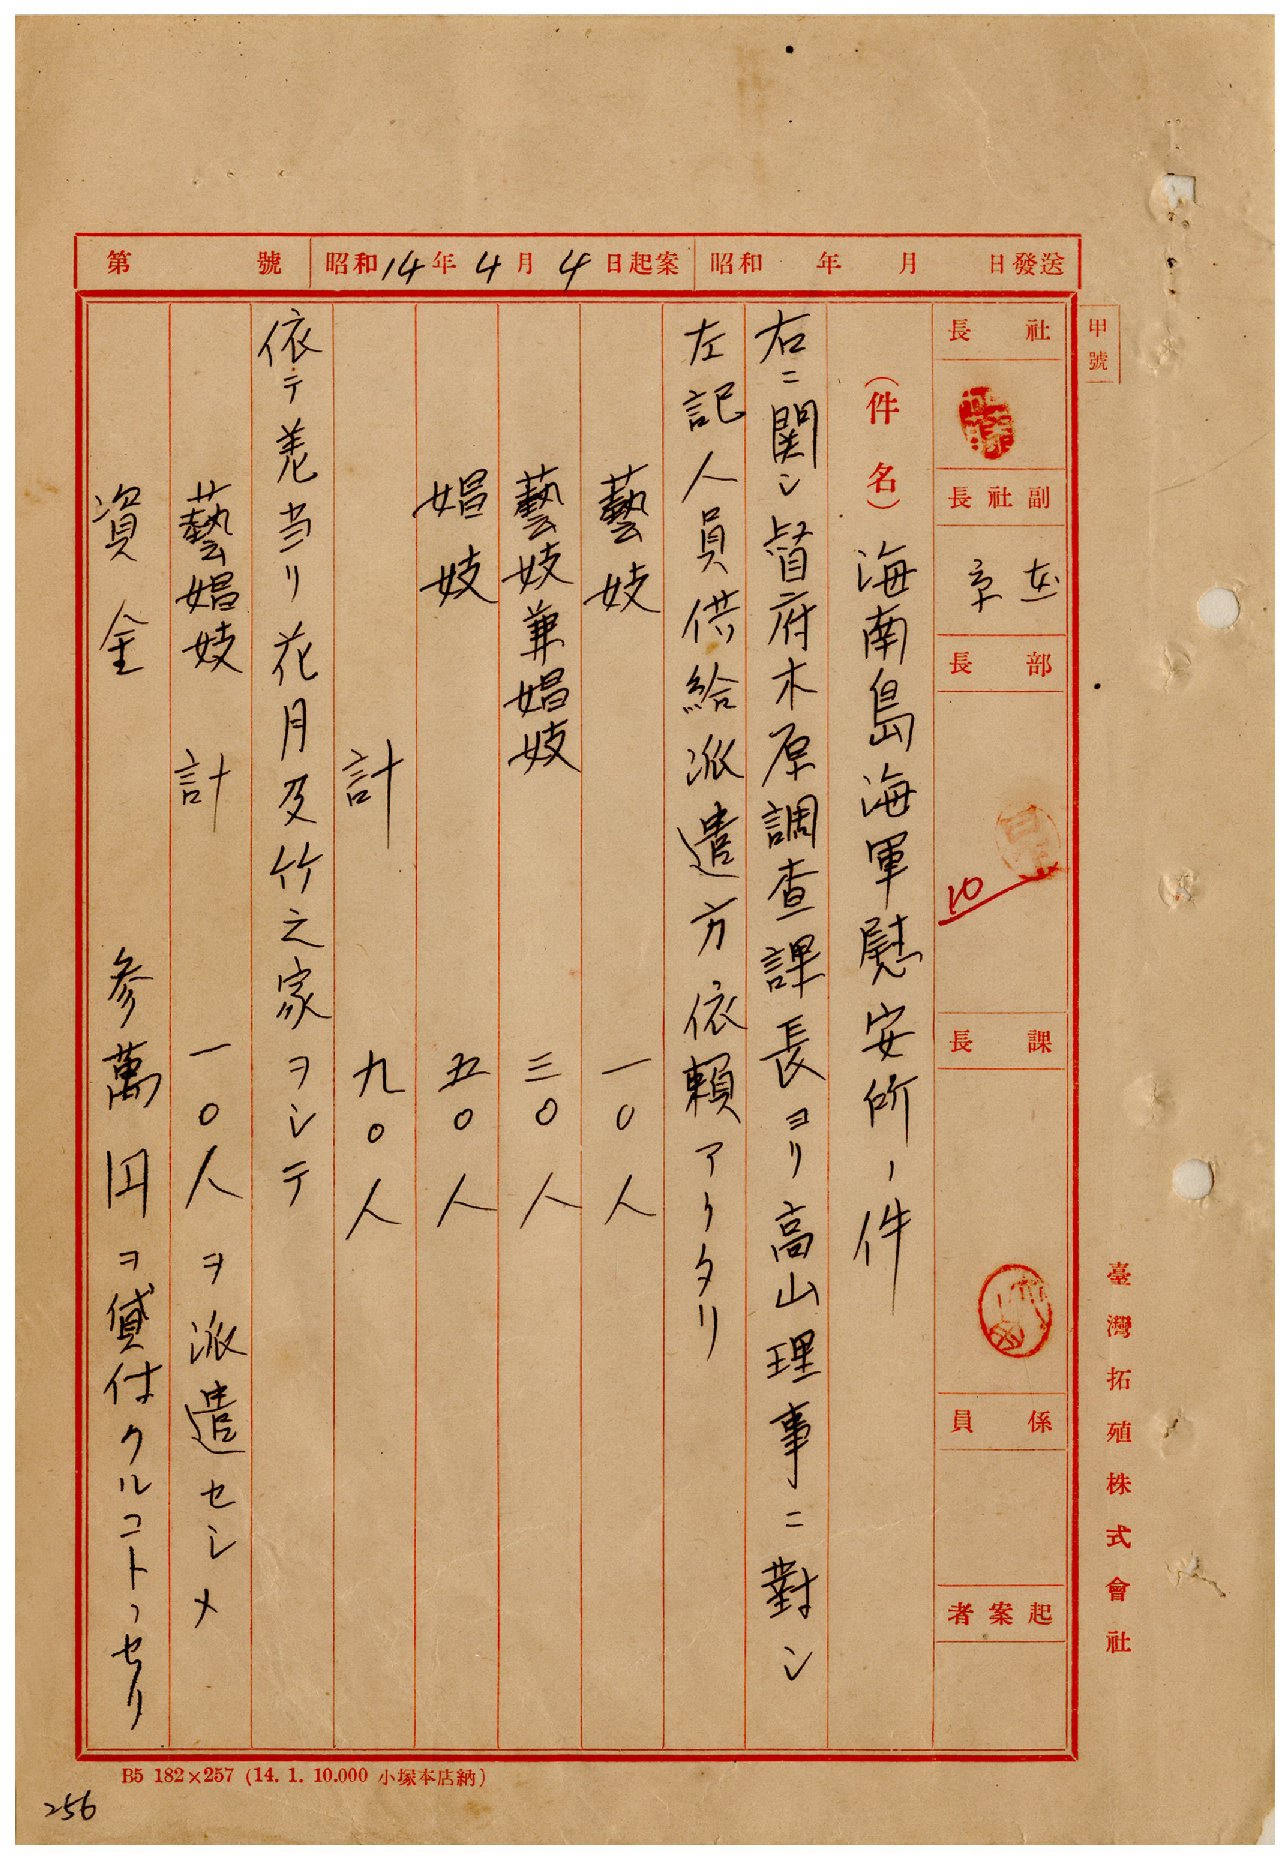 第　　　號　昭和14年4月4日起案　昭和　年　月　日發送
甲號
社長
副社長
部長
10
課長
係員
起案者
（件名）海南島海軍慰安所ノ件
右ニ関シ督府木原調査課長ヨリ高山理事ニ對シ
左記人員供給派遣方依頼アリタリ
藝妓　一〇人
藝妓兼娼妓　三〇人
娼妓　五〇人
計　九〇人
依テ差当リ花月及竹之家ヲシテ
藝娼妓　計　一〇人ヲ派遣セシメ
資金　参萬円ヲ貸付クルコトヽセリ
臺灣拓殖株式會社
B5 182×257 (14. 1. 10.000 小塚本店納)
256